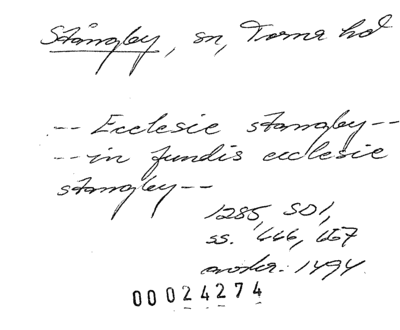 Stångby, sn, Torna hd
-- Ecclesie stangby --
-- in fundis ecclesie
stangby --
1285, SD1,
ss. 666, 667
avskr. 1494.
00024274